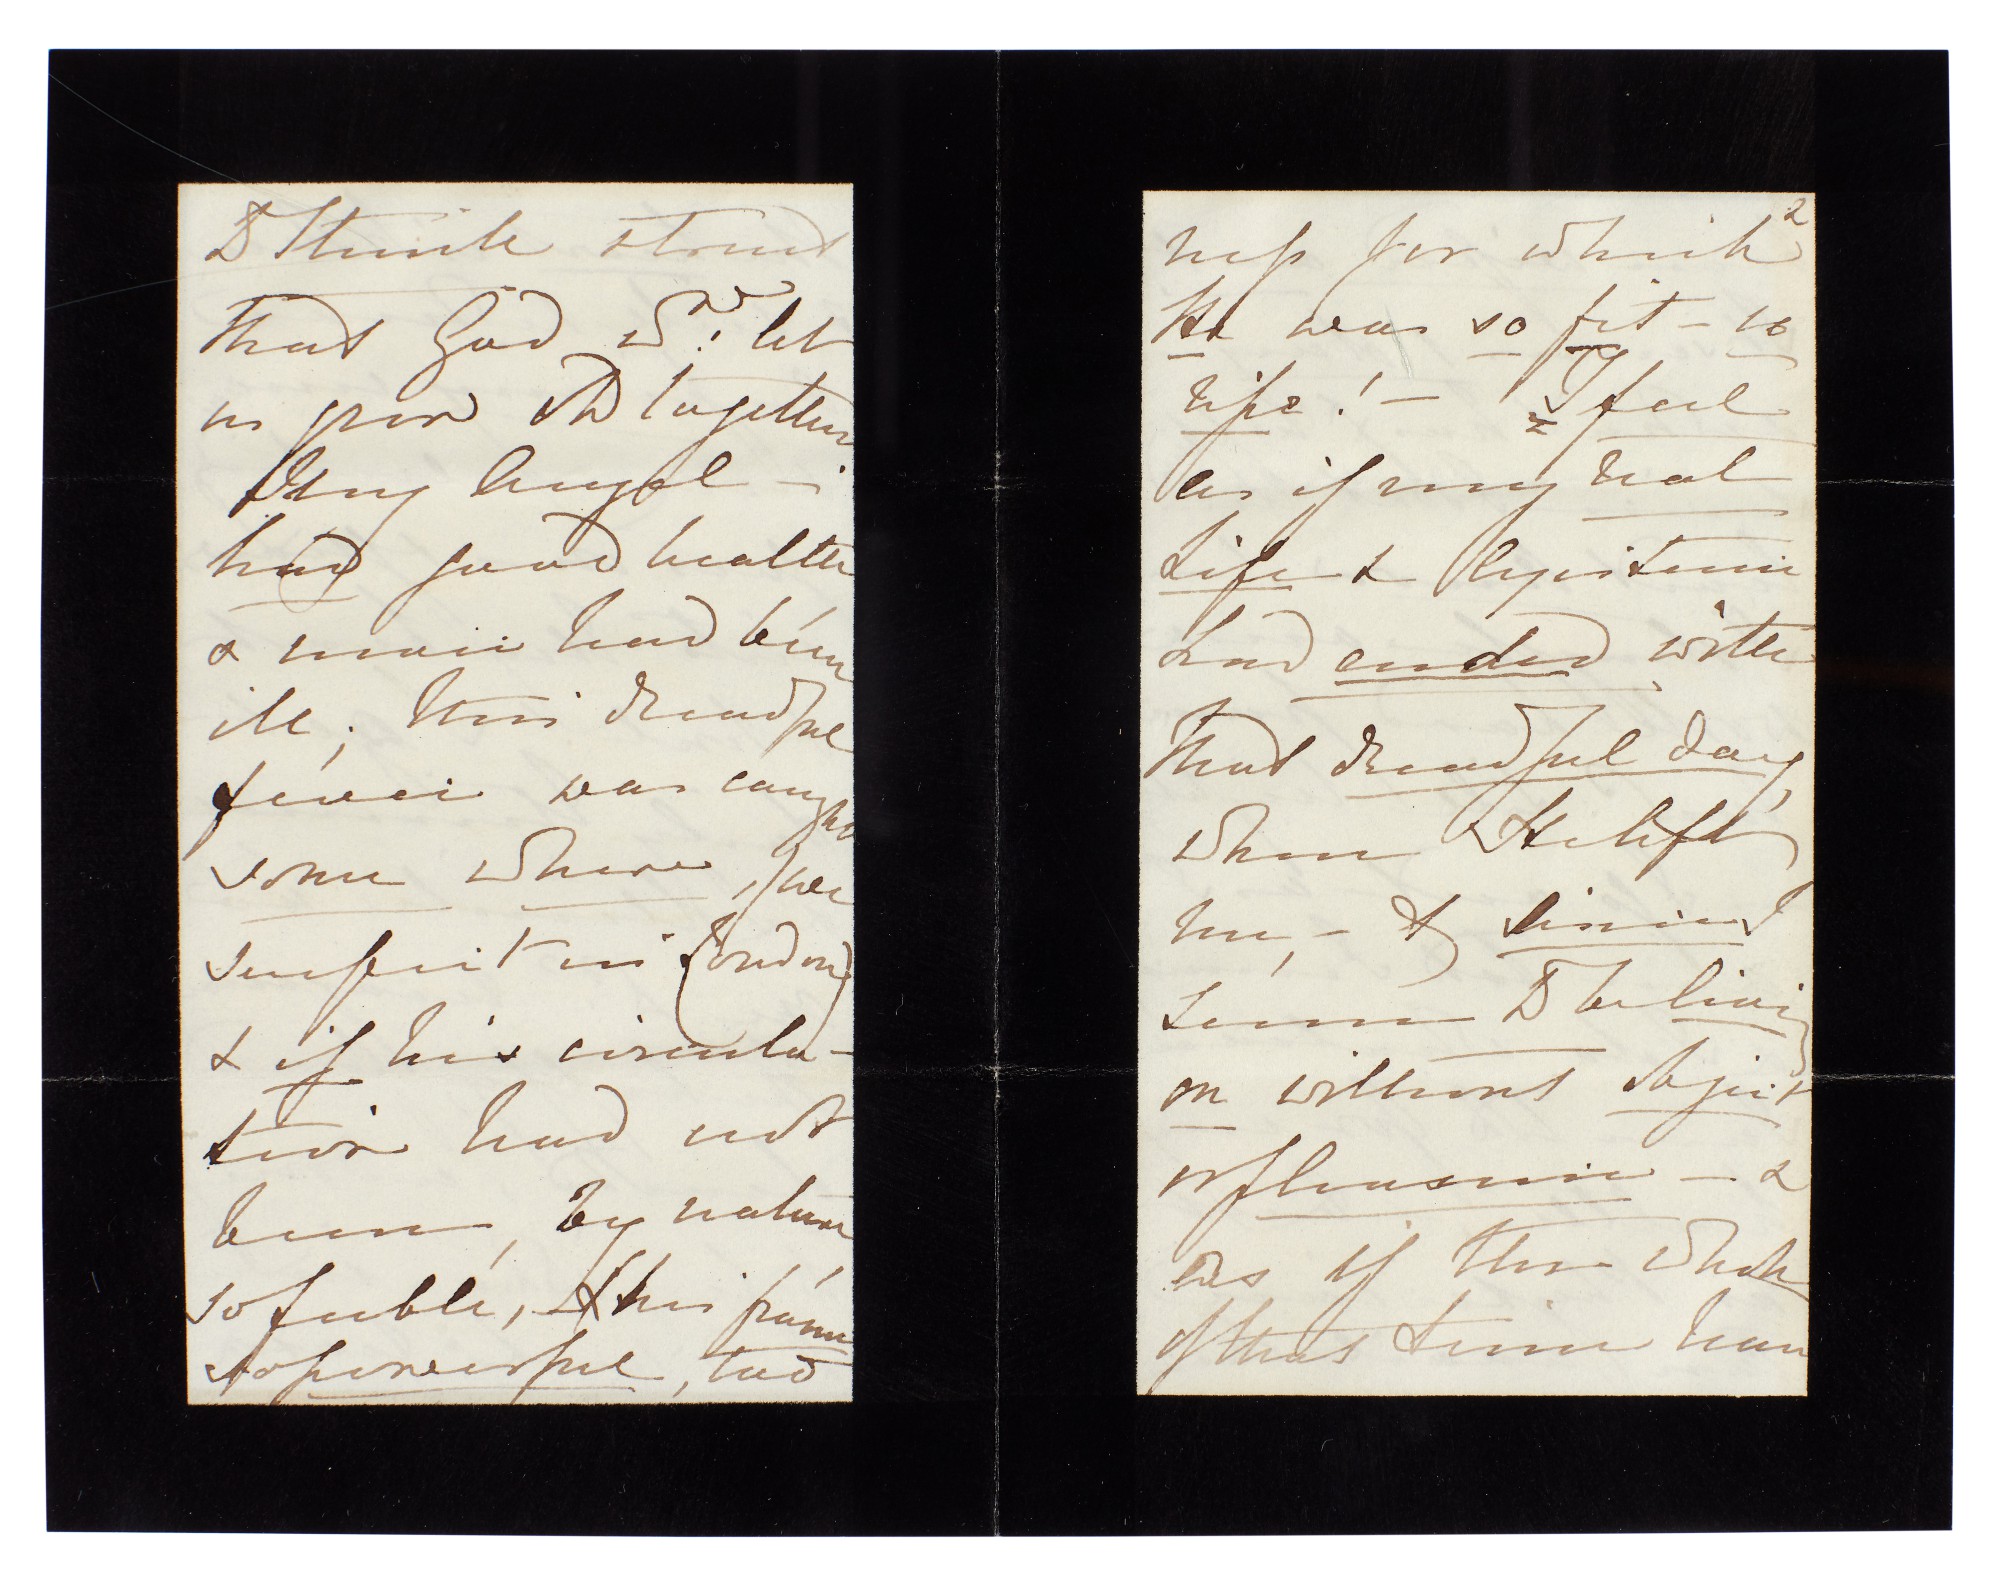 to think & trust
that God wld. let
us grow old together
My Angel –
had good health
& never had been
ill; this dreadful
fever was caught
some where, (we
suspect in London)
& if his circula-
tion had not
been, by nature
so feeble, & his frame
so powerful, too
2
ness for which
He was so fit – so
ripe! – I feel
as if my real
Life & existence
had ended with
that dreadful day,
when He left
me, – & since I
seem to be living
on without object
or pleasure – &
as if the whole
of that time have